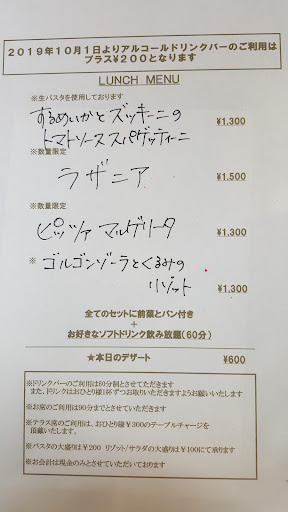 2019年10月1日よりアルコールドリンクバーのご利用は
プラス¥200となります
LUNCH MENU
※生パスタを使用しております
するめいかとズッキーニの
トマトソーススパゲッティーニ ¥1,300
※数量限定
ラザニア ¥1,500
※数量限定
ピッツァ マルゲリータ ¥1,300
※ ゴルゴンゾーラとくるみの
リゾット ¥1,300
全てのセットに前菜とパン付き
+
お好きなソフトドリンク飲み放題(60分)
★本日のデザート ¥600
※ドリンクバーのご利用は60分制とさせてただきます
また、ドリンクはおひとり様1杯ずつお取りいただきますようお願いいたします
※お席のご利用は90分までとさせていただきます
※テラス席のご利用は、おひとり様¥300のテーブルチャージを
頂戴いたします。
※パスタの大盛りは¥200 リゾット/サラダの大盛りは¥100にて承ります
※お会計は現金のみとさせていただいております